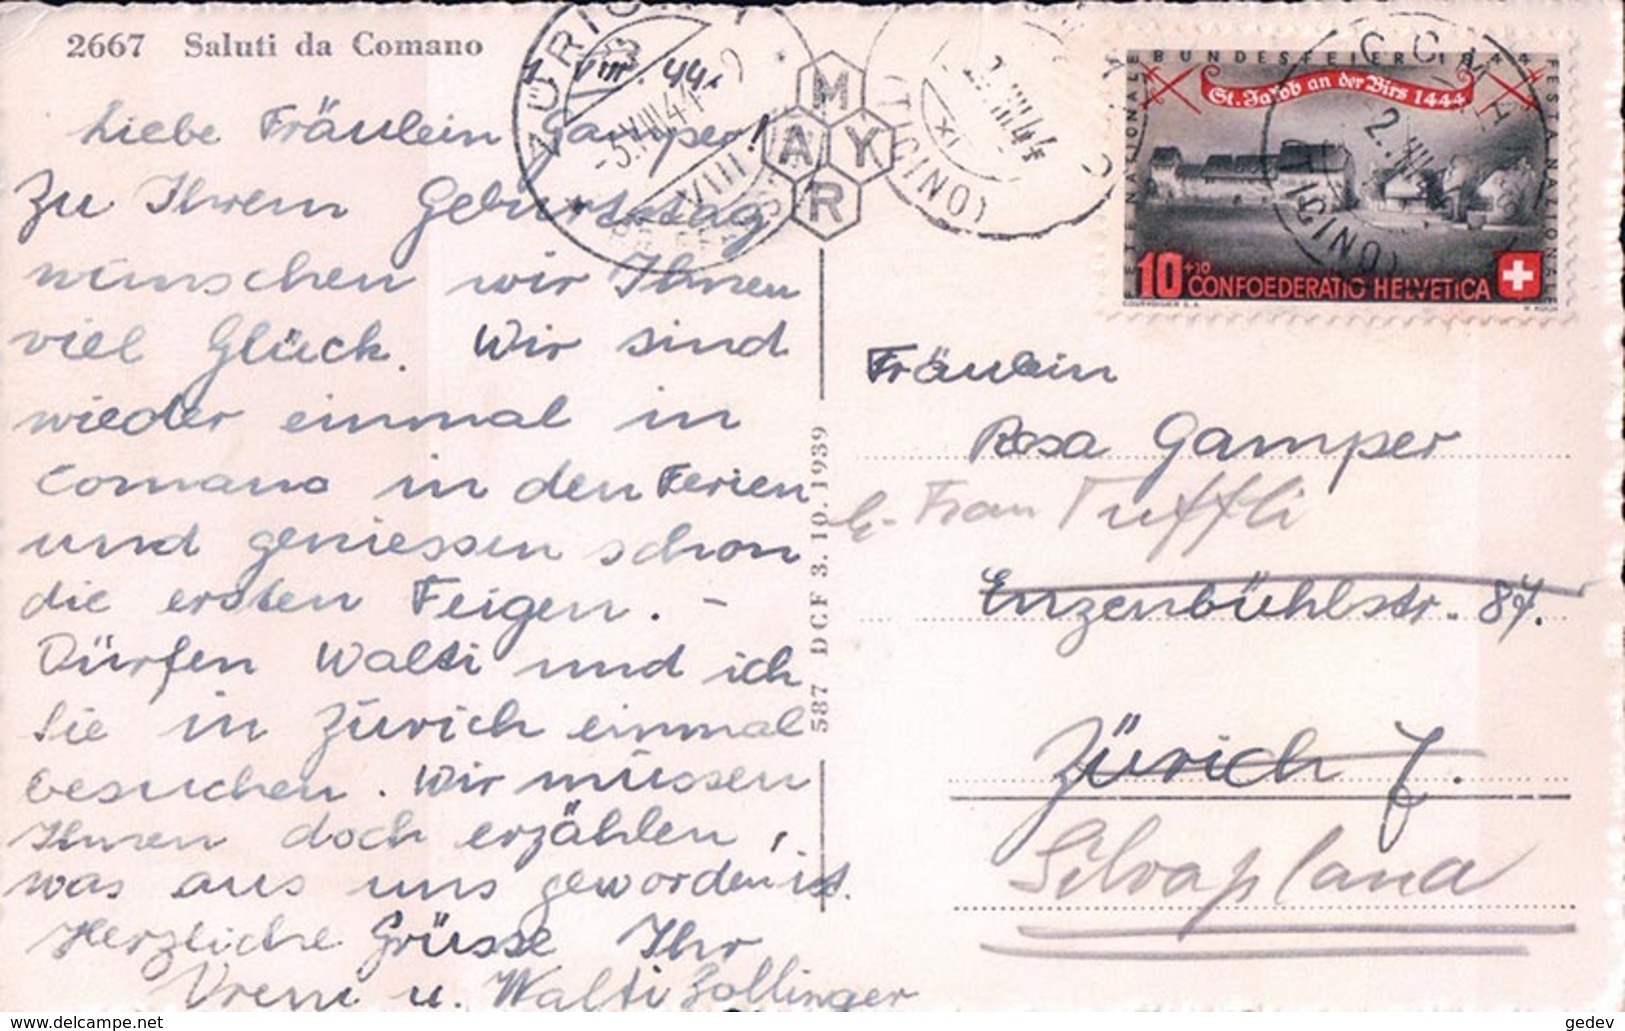 2667 Saluti da Comano
1. VIII. 44.
Liebe Fräulein Gamper!
Zu Ihrem Geburtstag
wünschen wir Ihnen
viel Glück. Wir sind
wieder einmal in
Comano in den Ferien
und geniessen schon
die ersten Feigen. –
Dürfen Walti und ich
Sie in Zürich einmal
besuchen. Wir müssen
Ihnen doch erzählen,
was aus uns geworden ist.
Herzliche Grüsse Ihr
Vreni u. Walti Zollinger
ZÜRICH
-3.VIII.44
MAYR
2.VIII.44
XI
(TICINO)
587 DCF 3.10.1939
BUNDESFEIER 1944
FESTA NAZIONALE
FÊTE NATIONALE
St. Jakob an der Birs 1444
10+10 CONFOEDERATIO HELVETICA
COURVOISIER S.A.
COMANO
2.VIII.44
(TICINO)
Fräulein
Rosa Gamper
b. Frau Tuffli
Enzenbühlstr. 87.
Zürich 7.
Silvaplana
https://www.delcampe.net
gedev